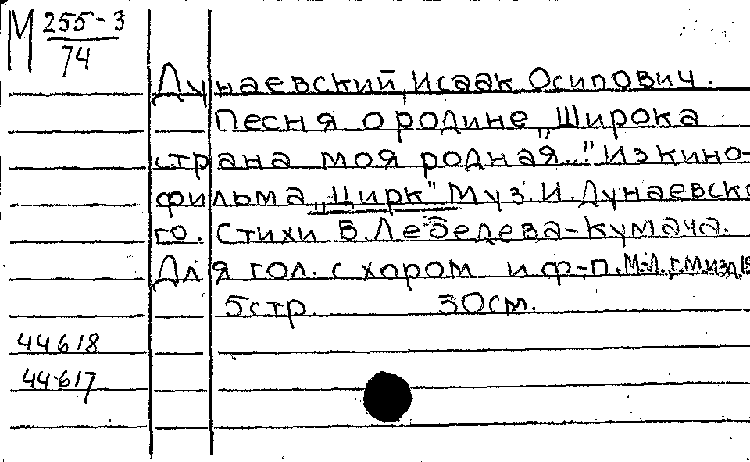 М 255-3
74
Дунаевский, Исаак Осипович.
Песня о родине „Широка
страна моя родная..." Из кино-
фильма „Цирк" Муз. И. Дунаевско
го. Стихи В. Лебедева-Кумача.
Для гол. с хором и ф-п. М.-Л. г. Музиз
5 стр. 30 см.
44618
44617